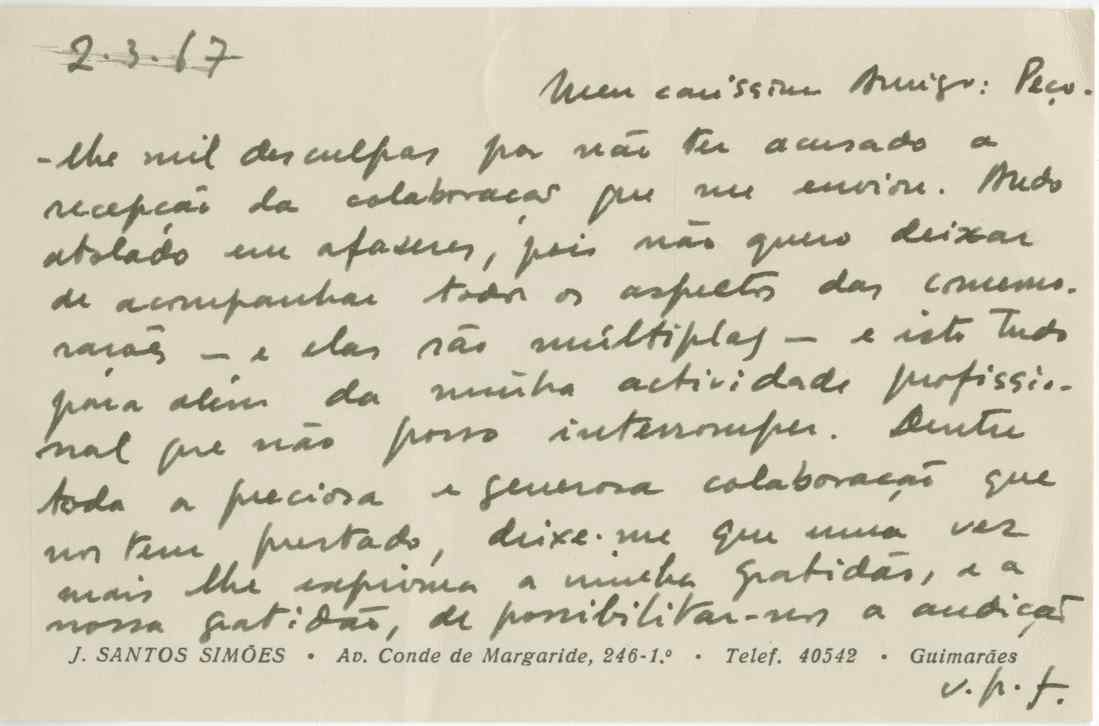 2.3.67
Meu caríssimo Amigo: Peço-
-lhe mil desculpas por não ter acusado a
recepção da colaboração que me enviou. Ando
atolado em afazeres, pois não quero deixar
de acompanhar todos os aspectos das comemo-
rações — e elas são múltiplas — e isto tudo
para além da minha actividade profissio-
nal que não posso interromper. Dentre
toda a preciosa e generosa colaboração que
nos tem prestado, deixe-me que uma vez
mais lhe exprima a minha gratidão, e a
nossa gratidão, de possibilitar-nos a audição
J. SANTOS SIMÕES • Av. Conde de Margaride, 246-1.º • Telef. 40542 • Guimarães
v.p.f.